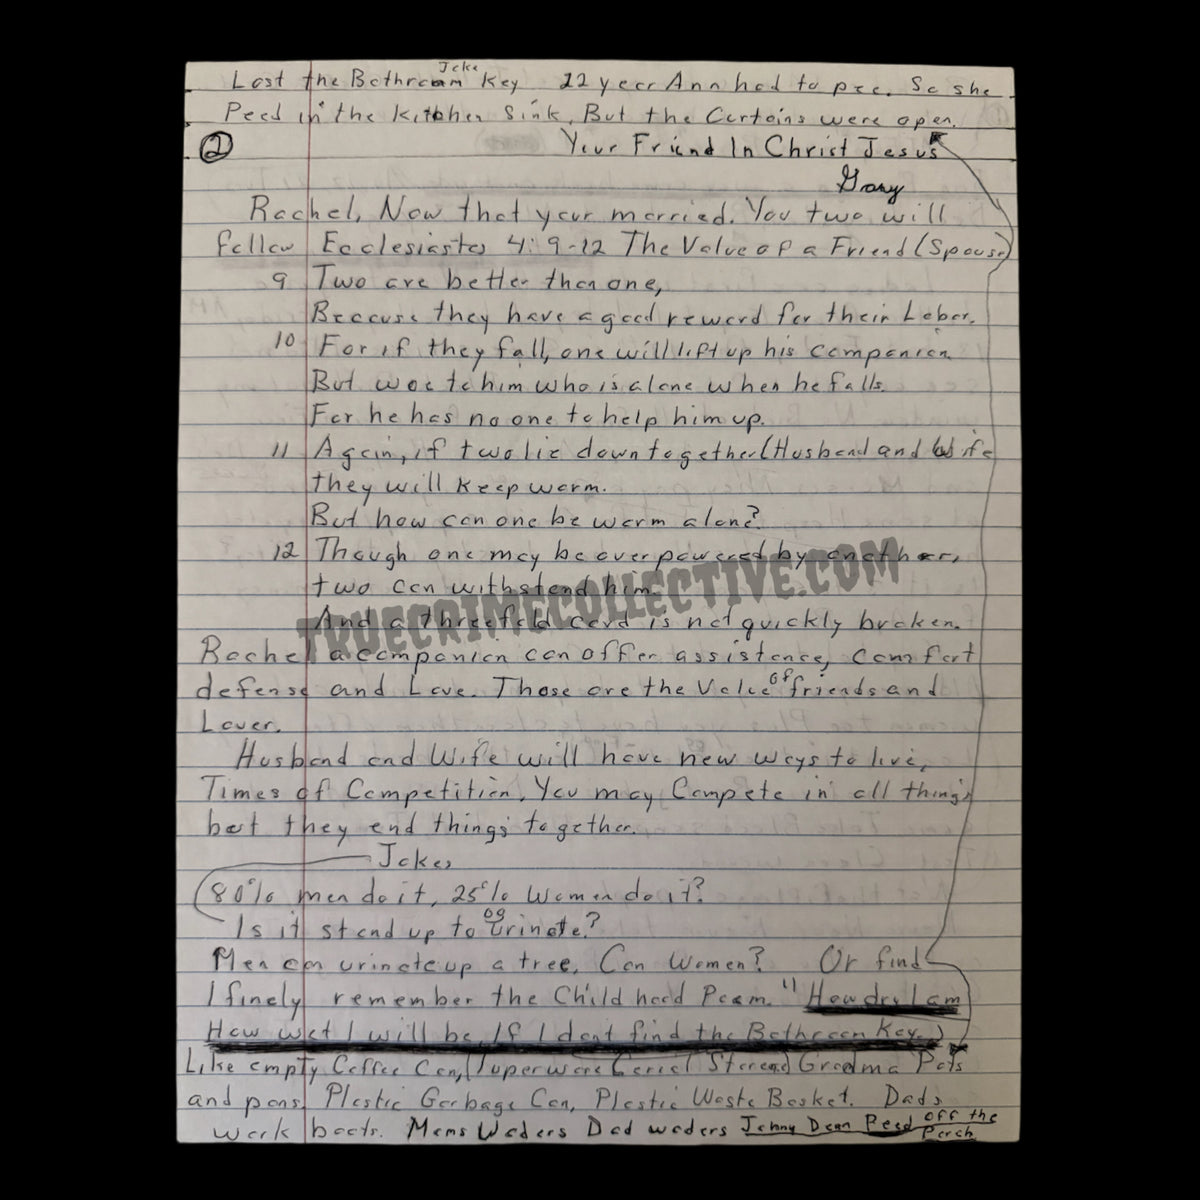 Joke
Lost the Bathroom Key 12 year Ann had to pee. So she
Peed in the kitchen Sink, But the Curtains were open.
② Your Friend In Christ Jesus
Gary
Rachel, Now that your married. You two will
follow Ecclesiastes 4:9-12 The Value of a Friend (Spouse)
9 Two are better than one,
Because they have a good reward for their Labor.
10 For if they fall, one will lift up his companion.
But woe to him who is alone when he falls.
For he has no one to help him up.
11 Again, if two lie down together (Husband and Wife
they will keep warm.
But how can one be warm alone?
12 Though one may be overpowered by another,
two can withstand him.
And a threefold cord is not quickly broken.
TRUECRIMECOLLECTIVE.COM
Rachel a companion can offer assistance, comfort
defense and Love. Those are the Value of friends and
Lover.
Husband and Wife will have new ways to live,
Times of Competition. You may Compete in all things
but they end things together.
Jokes
80% men do it, 25% Women do it?
Is it stand up to urinate?
Men can urinate up a tree. Can Women? Or find
I finely remember the Child hood Poem. "How dry I am
How wet I will be, If I dont find the Bathroom Key.
Like empty Coffee Can, Tuperware Cereal Storead Gradma Pots
and pans. Plastic Garbage Can, Plastic Waste Basket. Dads
work boots. Moms Waders Dad waders Johny Dean Peed off the
Porch